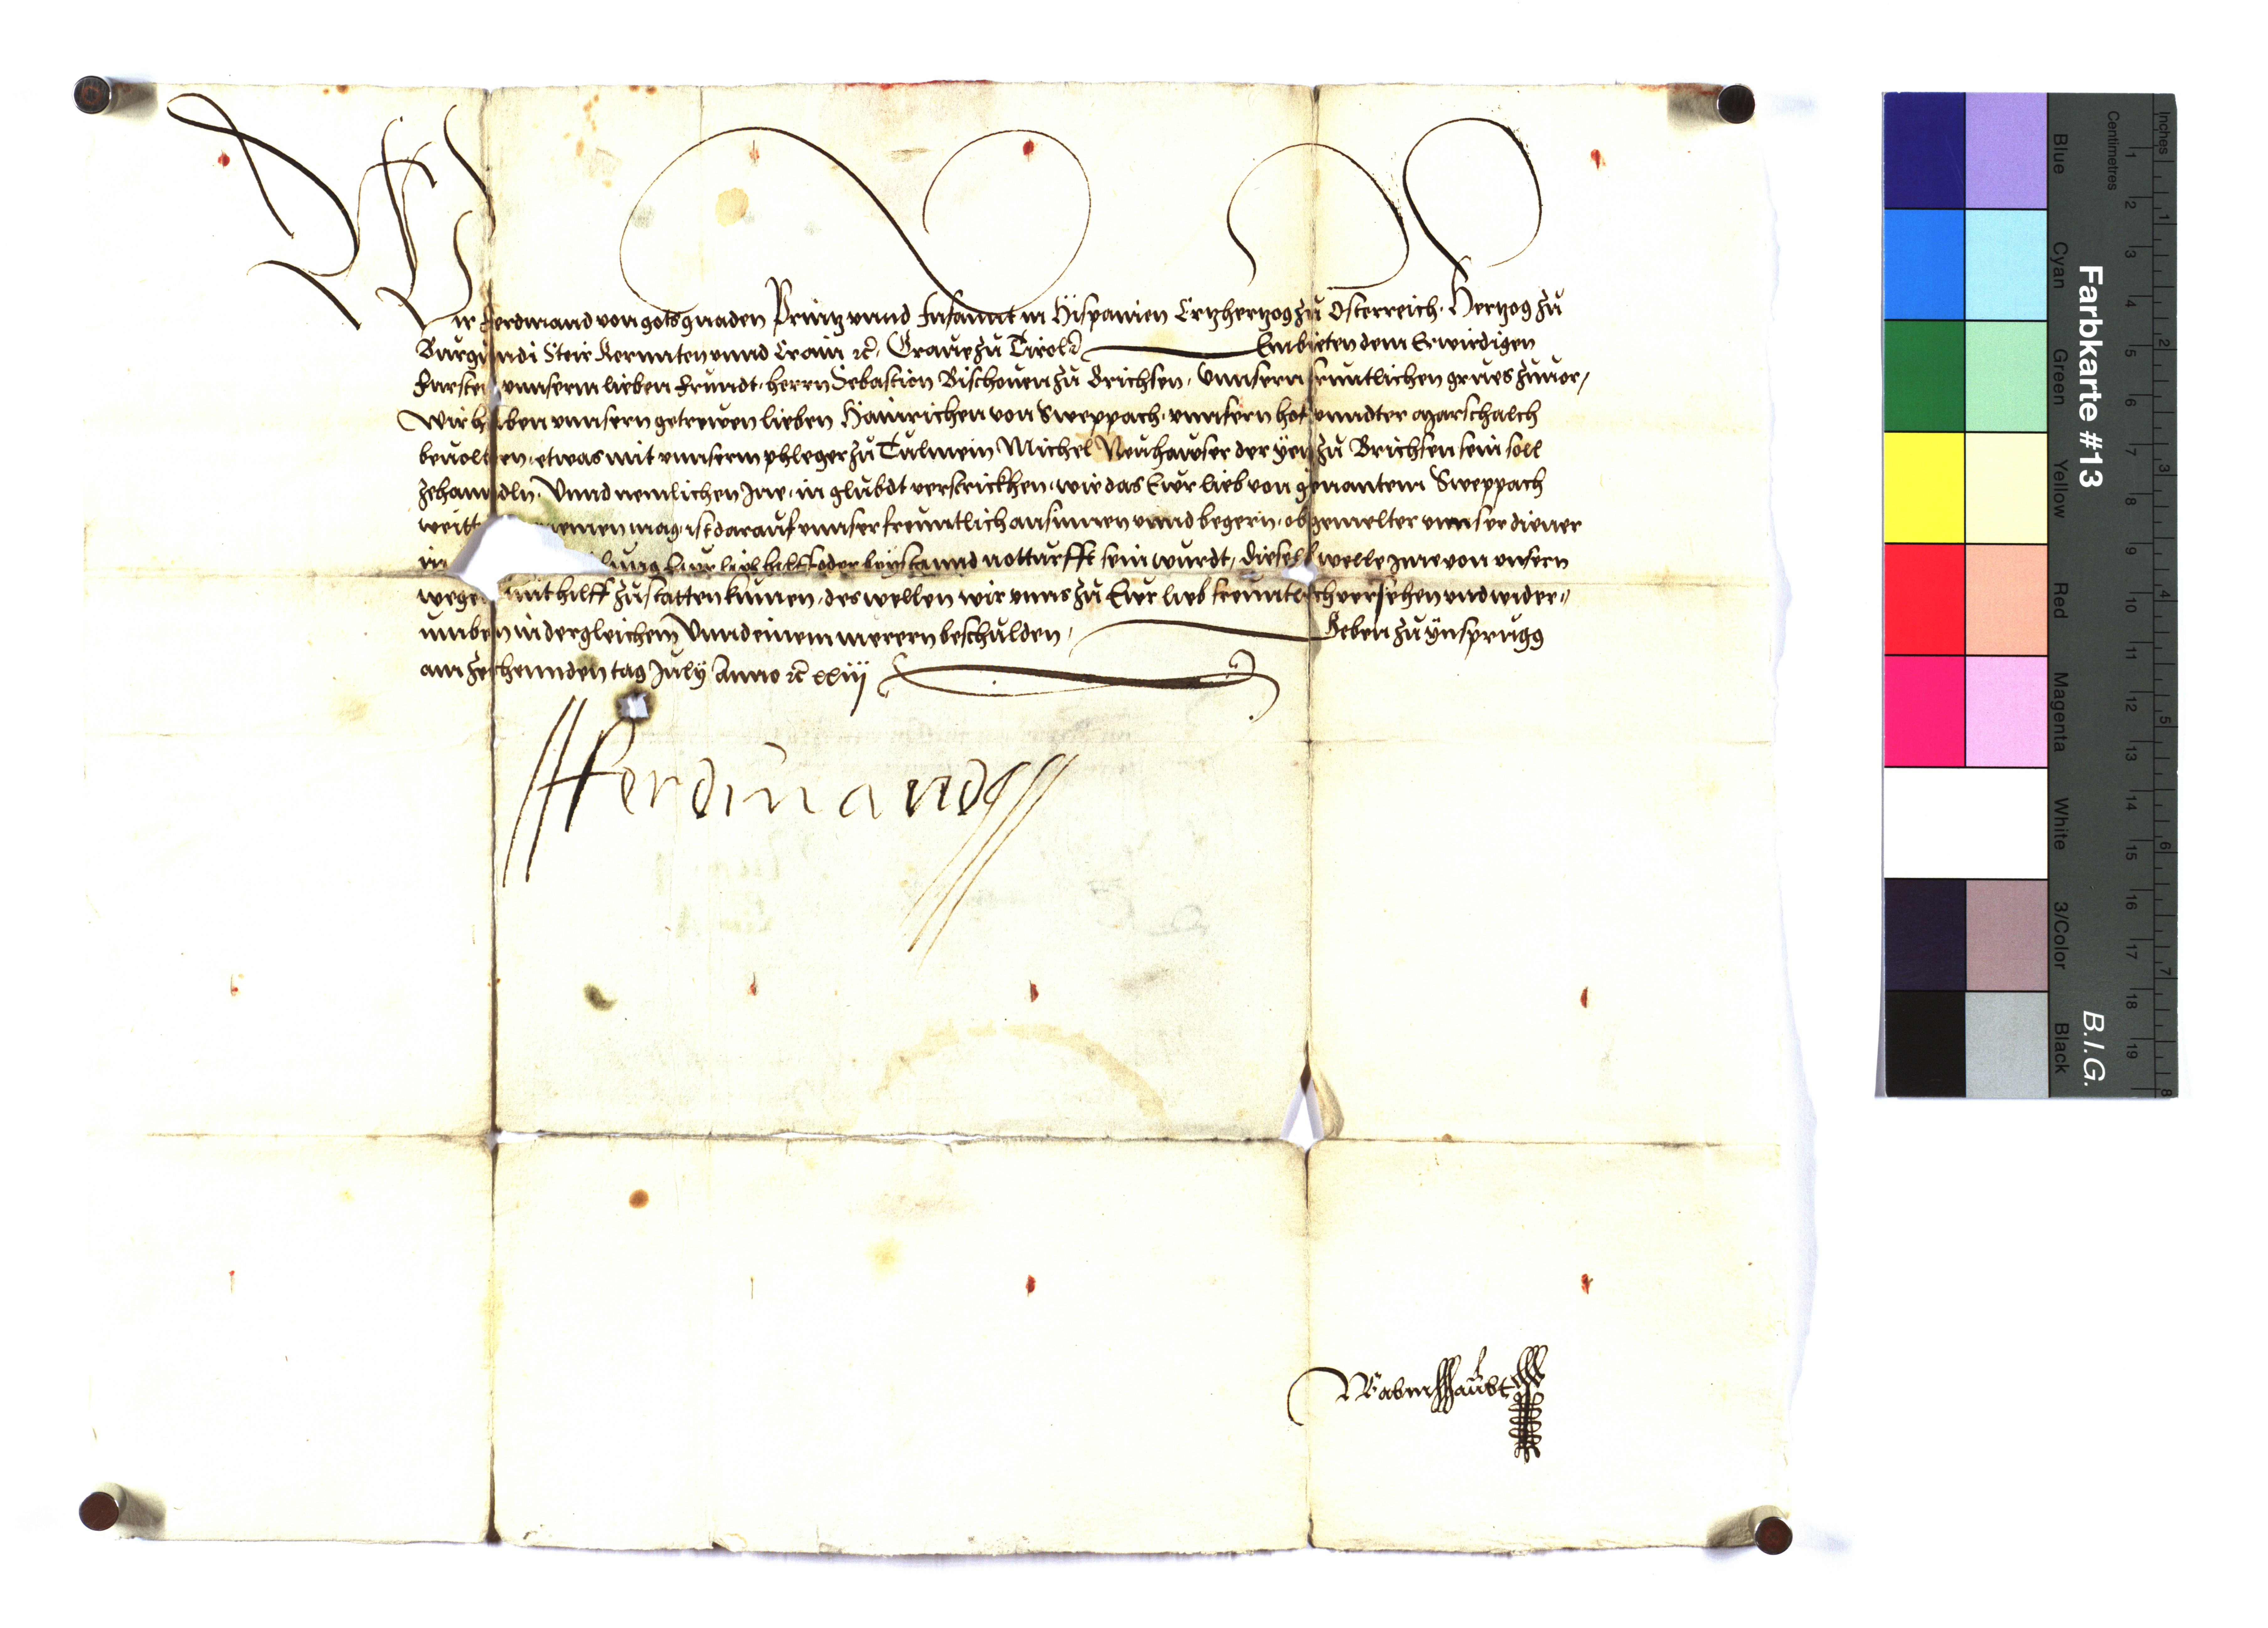 Wir Ferdinand von gots gnaden Printz vnnd Infannt in Hispanien Ertzhertzog zu Osterreich. Hertzog zu
Burgundi Steir Kernnten vnnd Crain ꝛc. Graue zu Tirol ꝛc Embieten dem Erwirdigen
Fursten vnnserm lieben frundt. herrn Sebastion Bischouen zu Brichsen. Vnnsern fruntlichen grues zuuor,
Wir haben vnnsern getrewen lieben Hainrichen von Sweppach. vnnsern hof vnndter Marschalch
beuolhen. etwas mit vnnserm phleger zu Tulmein Michel Neuhawser der yetz zu Brichsen sein soll
zehanndln. Vnnd nemlichen Ine. in glubdt verstrickhen. wie das Ewr lieb von genantem Sweppach
weitt nemen mag. ist darauf vnnser freuntlich ansinnen vnnd begern. ob gemelter vnnser diener
in lung Ewr lieb hilff oder beystannd notturfft sein wurdt, dieselb welle Ime von vnsern
wegen mit hilff zu statten kumen. des wellen wir vnns zu Ewr lieb freuntlich versehen vnd wider=
umben in dergleichem Vnnd einem merern beschulden. Geben zu Ynsprugg
am zechennden tag July Anno ꝛc xxiij
Ferdinand
Rabenhaubt
Farbkarte #13
B.I.G.
Inches
Centimetres
1 2 3 4 5 6 7 8 9 10 11 12 13 14 15 16 17 18 19
1 2 3 4 5 6 7 8
Blue
Cyan
Green
Yellow
Red
Magenta
White
3/Color
Black